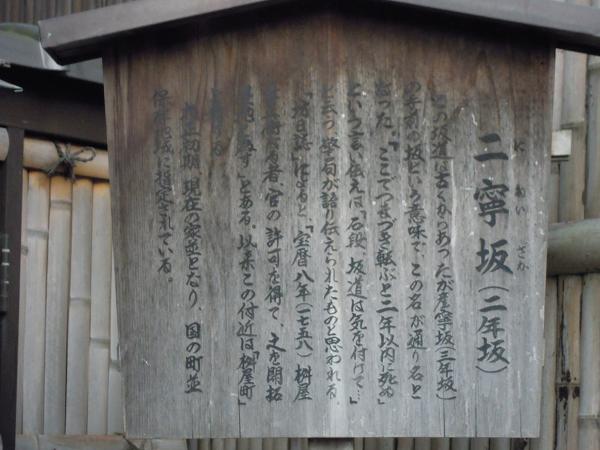 二寧坂（二年坂）
にねいざか
この坂道は古くからあったが産寧坂（三年坂）
の手前の坂という意味で、この名が通り名と
なった。「ここでつまづき転ぶと二年以内に死ぬ」
という言い伝えは「石段、坂道は気を付けて…」
と云う 警句が語り伝えられたものと思われる。
「坊目誌」によると、「宝暦八年（一七五八）桝屋
喜兵衛なる者、官の許可を得て、之を開拓
宅地と為す」とある。以来この付近は「桝屋町」
と称する
大正初期、現在の家並となり、国の町並
保存地域に指定されている。